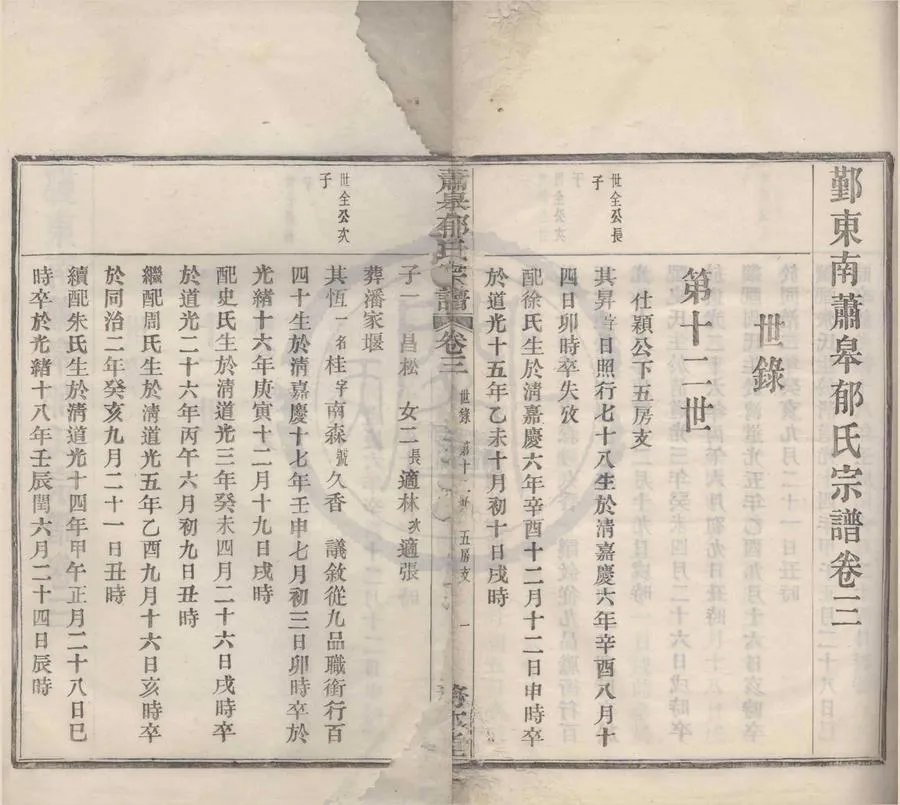 鄞東南蕭皋郁氏宗譜卷三
世錄
第十二世
仕穎公下五房支
世全公長子
其昇字日照行七十八生於清嘉慶六年辛酉八月十
四日卯時卒失攷
配徐氏生於清嘉慶六年辛酉十二月十二日申時卒
於道光十五年乙未十月初十日戌時
蕭皋郁氏宗譜 卷三 世錄 第十二世 五房支 一
子一 昌松 女二長適林次適張
葬潘家堰
世全公次子
其恆一名桂字南森號久香 議敘從九品職銜行百
四十生於清嘉慶十七年壬申七月初三日卯時卒於
光緒十六年庚寅十二月十九日戌時
配史氏生於清道光三年癸未四月二十六日戌時卒
於道光二十六年丙午六月初九日丑時
繼配周氏生於清道光五年乙酉九月十六日亥時卒
於同治二年癸亥九月二十一日丑時
續配朱氏生於清道光十四年甲午正月二十八日巳
時卒於光緒十八年壬辰閏六月二十四日辰時